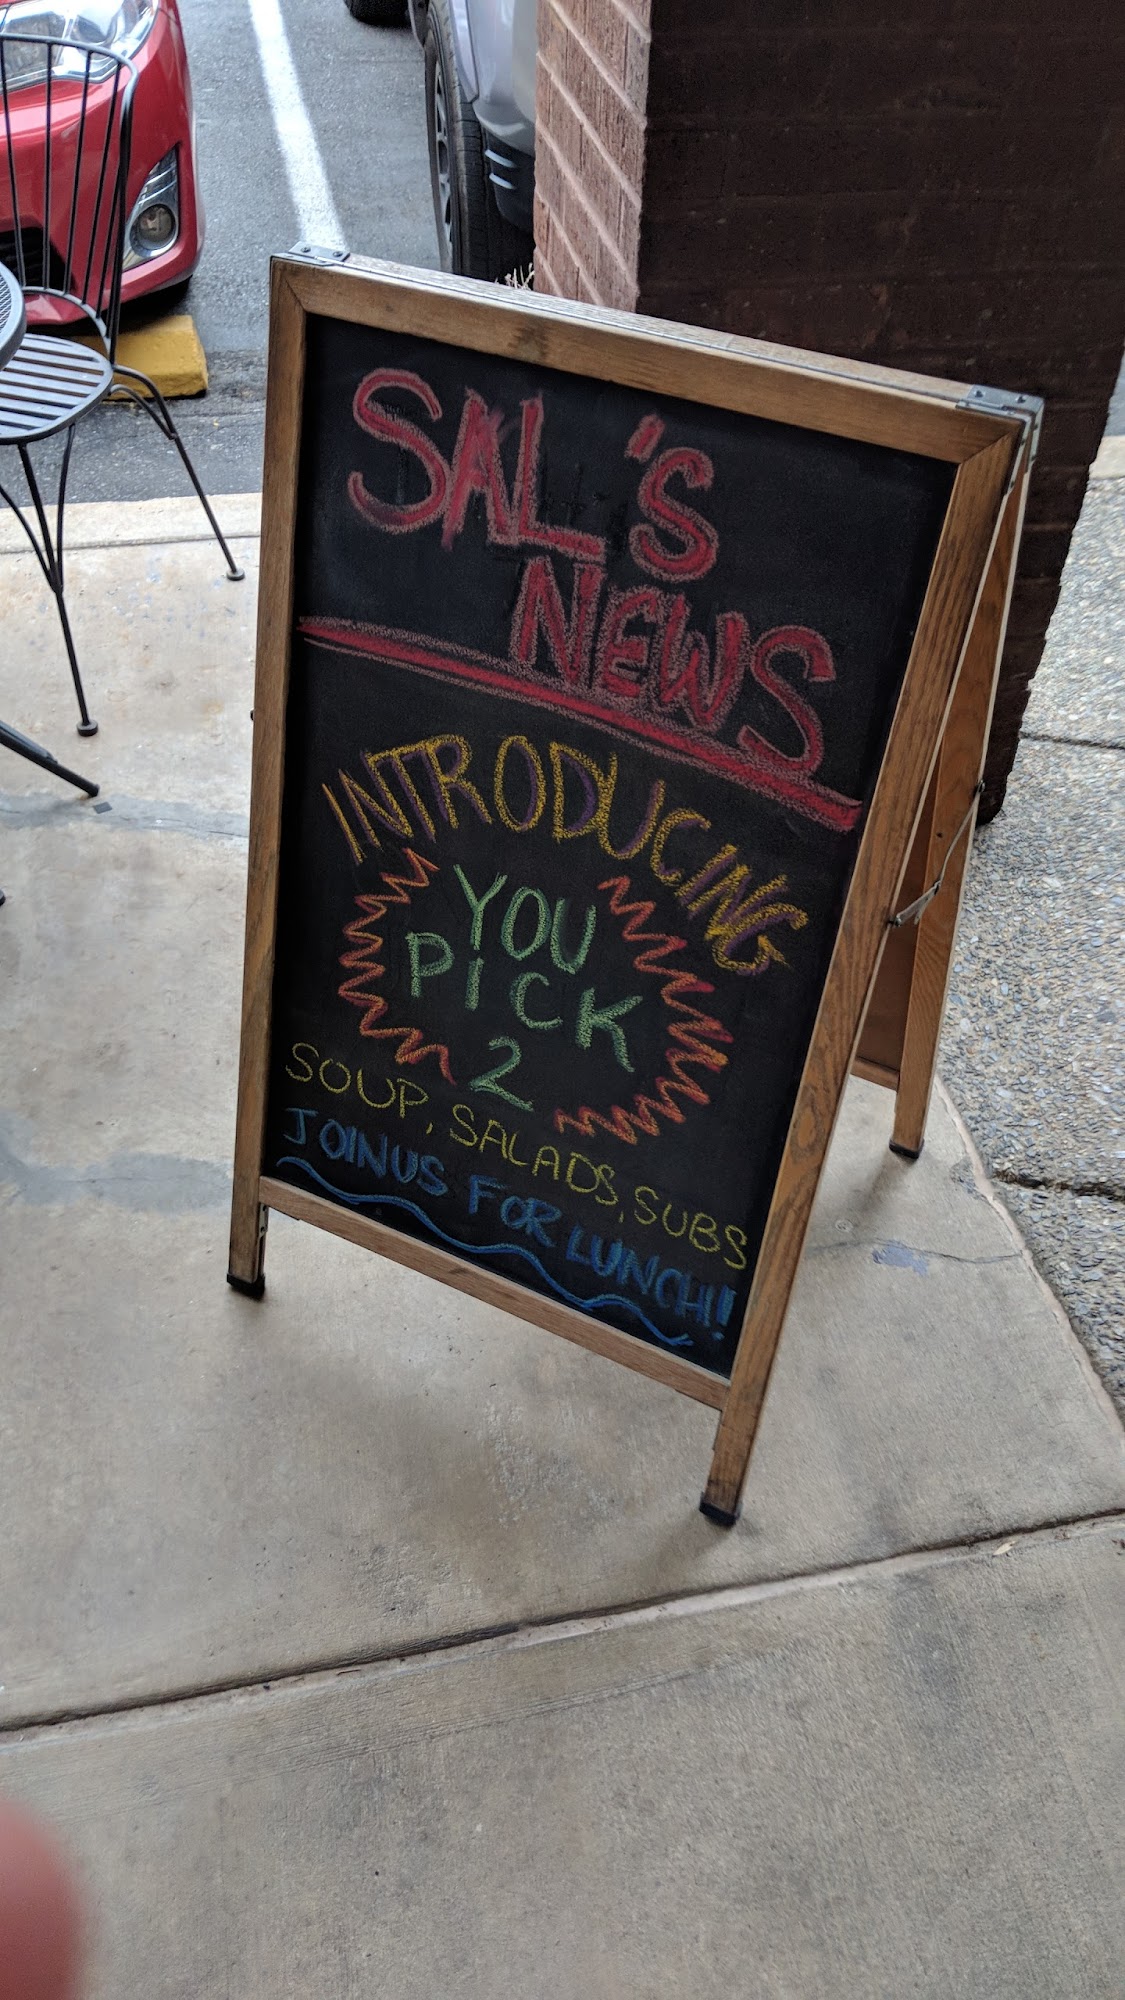 SAL'S
NEWS
INTRODUCING
YOU
PICK
2
SOUP, SALADS, SUBS
JOIN US FOR LUNCH!!